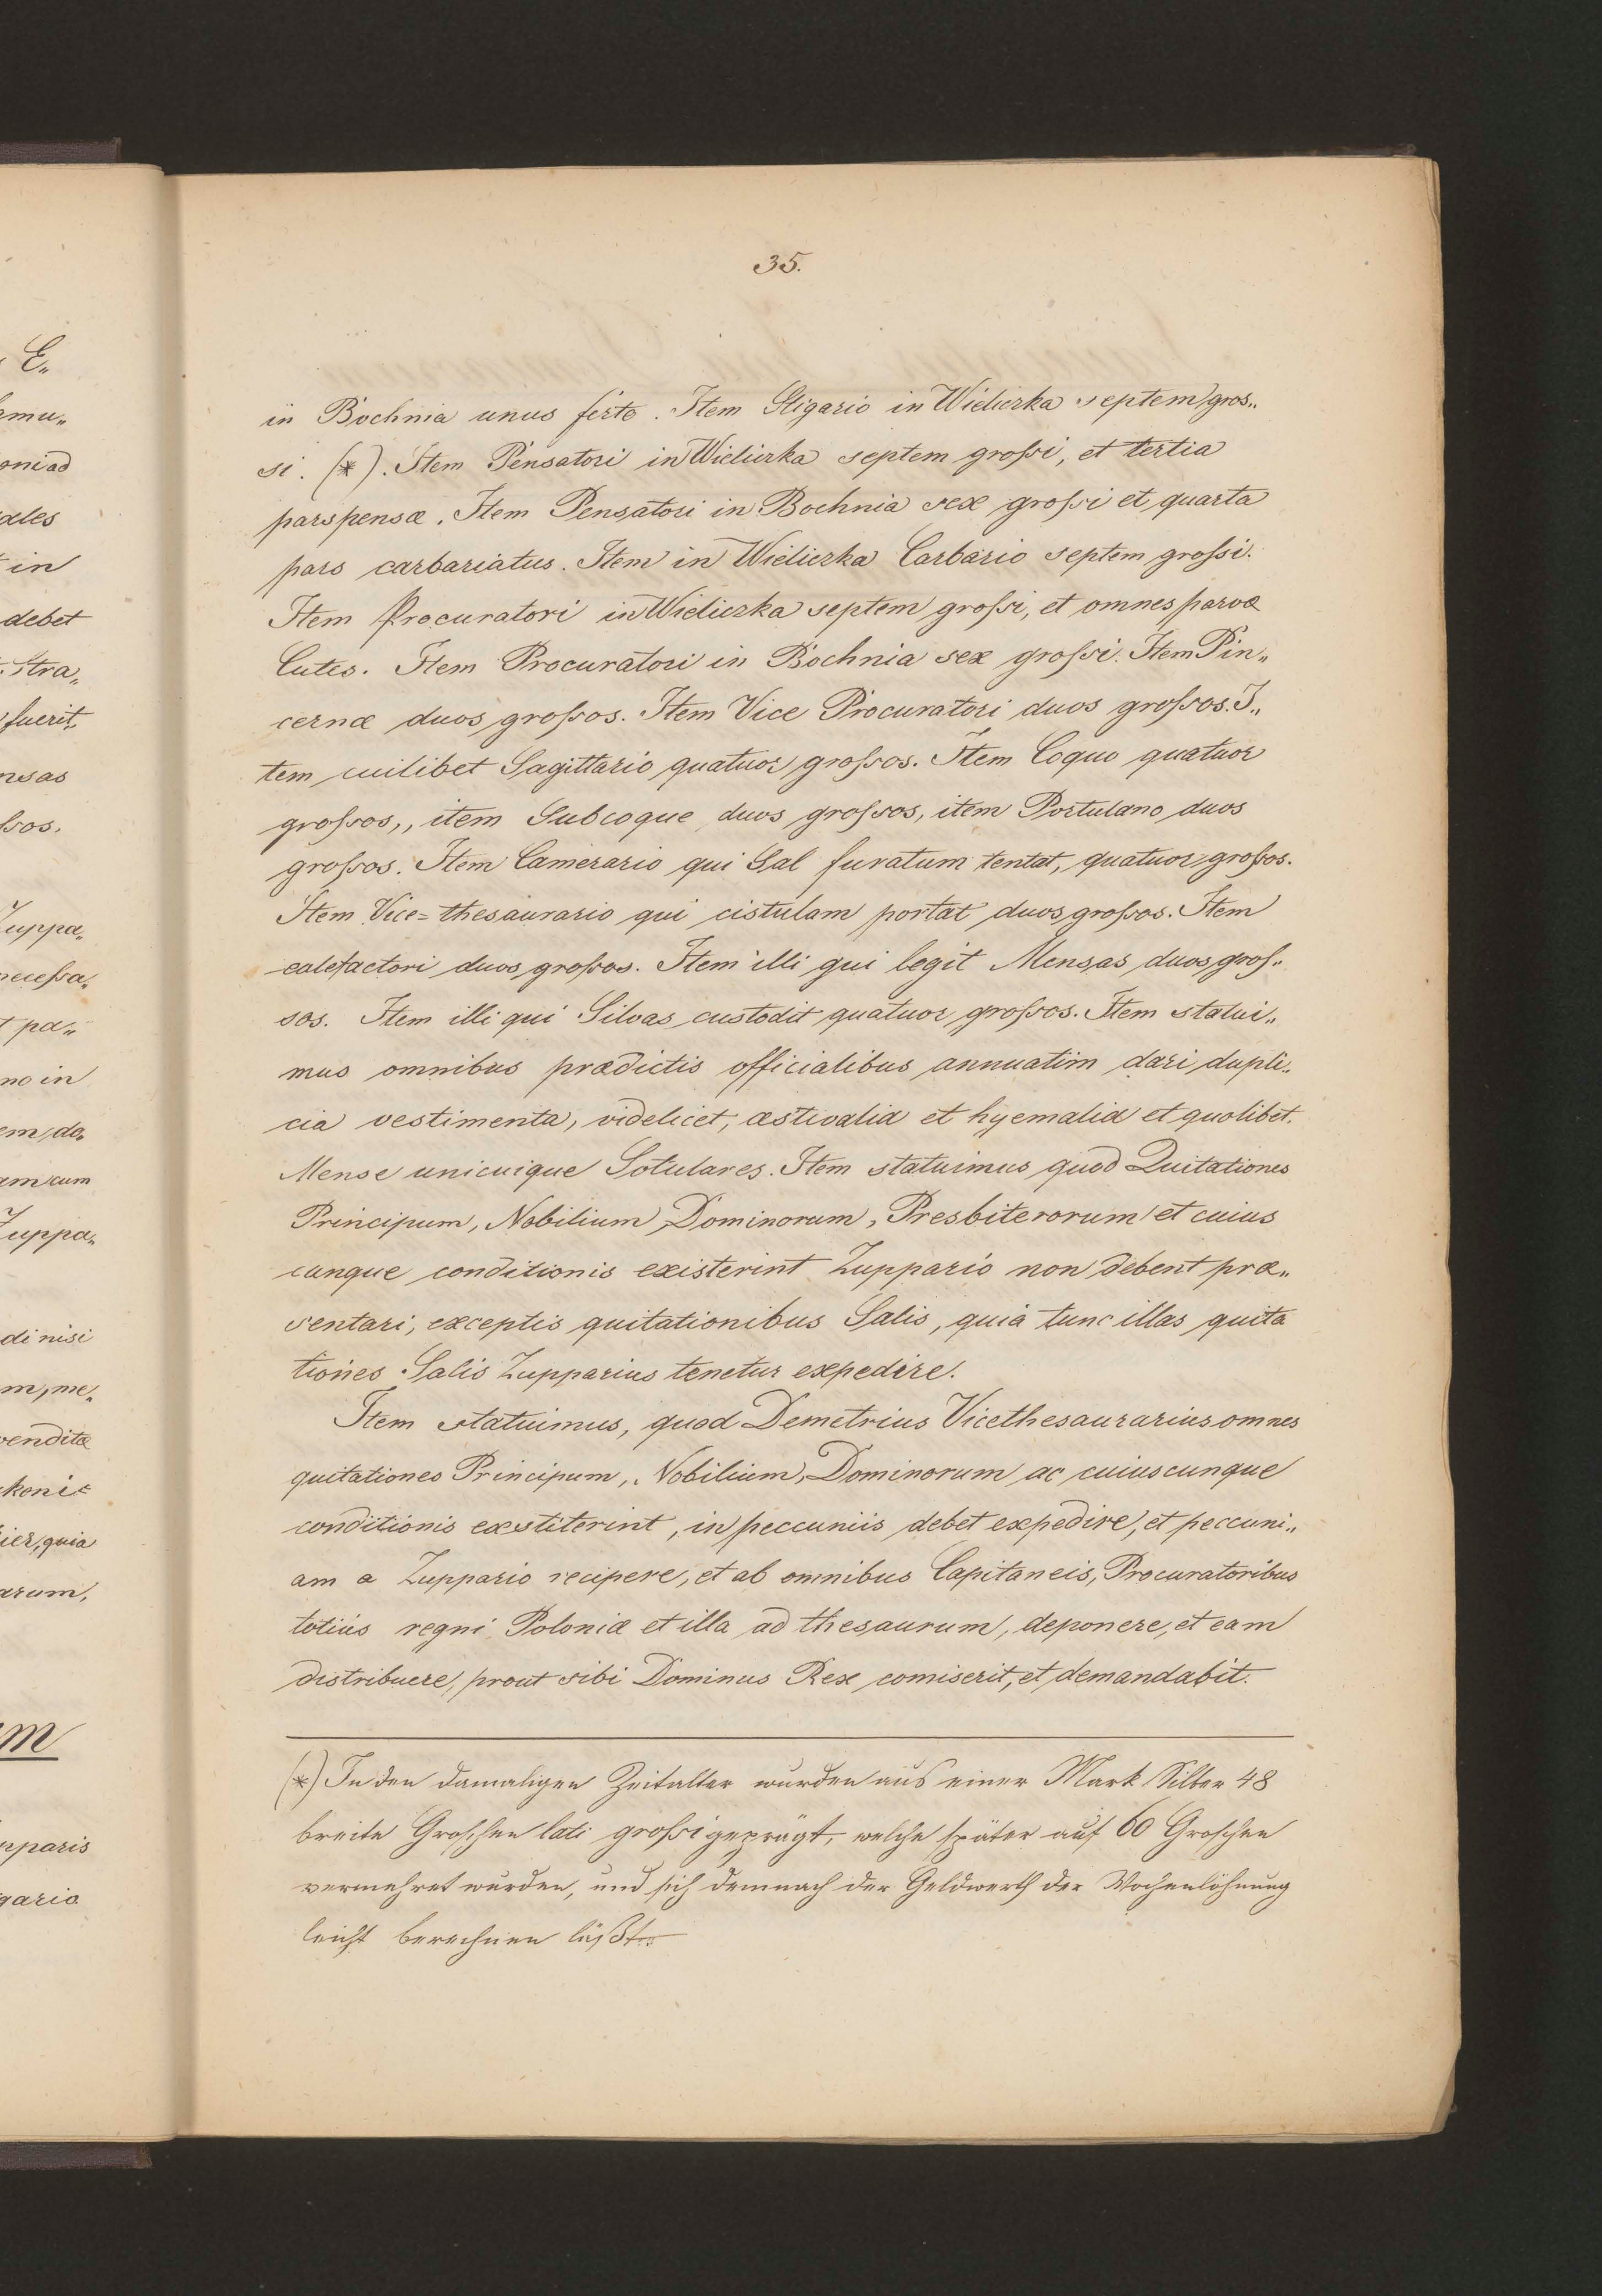 35.
in Bochnia unus ferto. Item Stigario in Wieliczka septem gros„
si. (*). Item Pensatori in Wieliczka septem grossi, et tertia
pars pensæ. Item Pensatori in Bochnia sex grossi et quarta
pars carbariatus. Item in Wieliczka Carbario septem grossi.
Item Procuratori in Wieliczka septem grossi, et omnes parvæ
Cutes. Item Procuratori in Bochnia sex grossi. Item Pin„
cernæ duos grossos. Item Vice Procuratori duos grossos. I„
tem cuilibet Sagittario quatuor grossos. Item Coquo quatuor
grossos,, item Subcoque duos grossos, item Portulano duos
grossos. Item Camerario qui Sal furatum tentat, quatuor grossos.
Item Vice=thesaurario qui cistulam portat duos grossos. Item
calefactori duos grossos. Item illi qui legit Mensas duos gros„
sos. Item illi qui Silvas custodit quatuor grossos. Item statui„
mus omnibus prædictis officialibus annuatim dari dupli„
cia vestimenta, videlicet, æstivalia et hyemalia et quolibet.
Mense unicuique Sotulares. Item statuimus quod Quitationes
Principum, Nobilium, Dominorum, Presbiterorum et cuius
cunque conditionis existerint Zuppario non debent præ„
sentari, exceptis quitationibus Salis, quia tunc illas quita
tiones Salis Zupparius tenetur expedire.
Item statuimus, quod Demetrius Vicethesaurarius omnes
quitationes Principum, Nobilium, Dominorum ac cuiuscunque
conditionis exstiterint, in peccuniis debet expedire, et peccuni„
am a Zuppario recipere, et ab omnibus Capitaneis, Procuratoribus
totius regni Poloniæ et illa ad thesaurum, deponere, et eam
distribuere, prout sibi Dominus Rex comiserit, et demandabit.
(*) In den damaligen Zeitalter wurden aus einer Mark Silber 48
breite Groschen lati grossi geprägt, welche später auf 60 Groschen
vermehret wurden, und sich demnach der Geldwerth der Wochenlöhnung
leicht berechnen läßt.
E„
amu„
oni ad
ales
in
debet
stra„
fuerit,
nsas
ssos.
Zuppa„
necessa„
pa„
no in
em da„
am cum
Zuppa„
di nisi
m, me„
vendita
koni=
ier, quia
arum,
m
pparis
gario